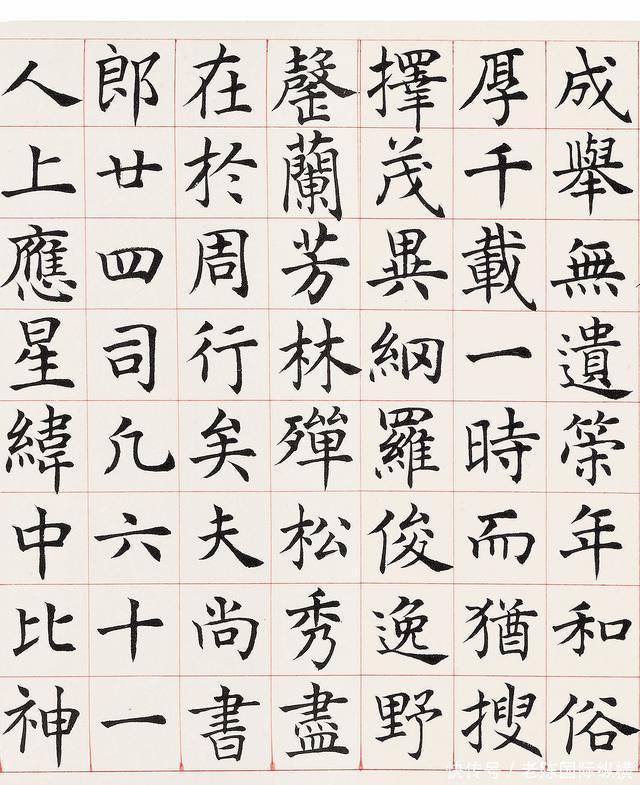 成舉無遺筞年和俗
厚千載一時而猶搜
擇茂異網羅俊逸野
罄蘭芳林殫松秀盡
在於周行矣夫尚書
郎廿四司凡六十一
人上應星緯中比神
快传号 / 老陈国际纵横